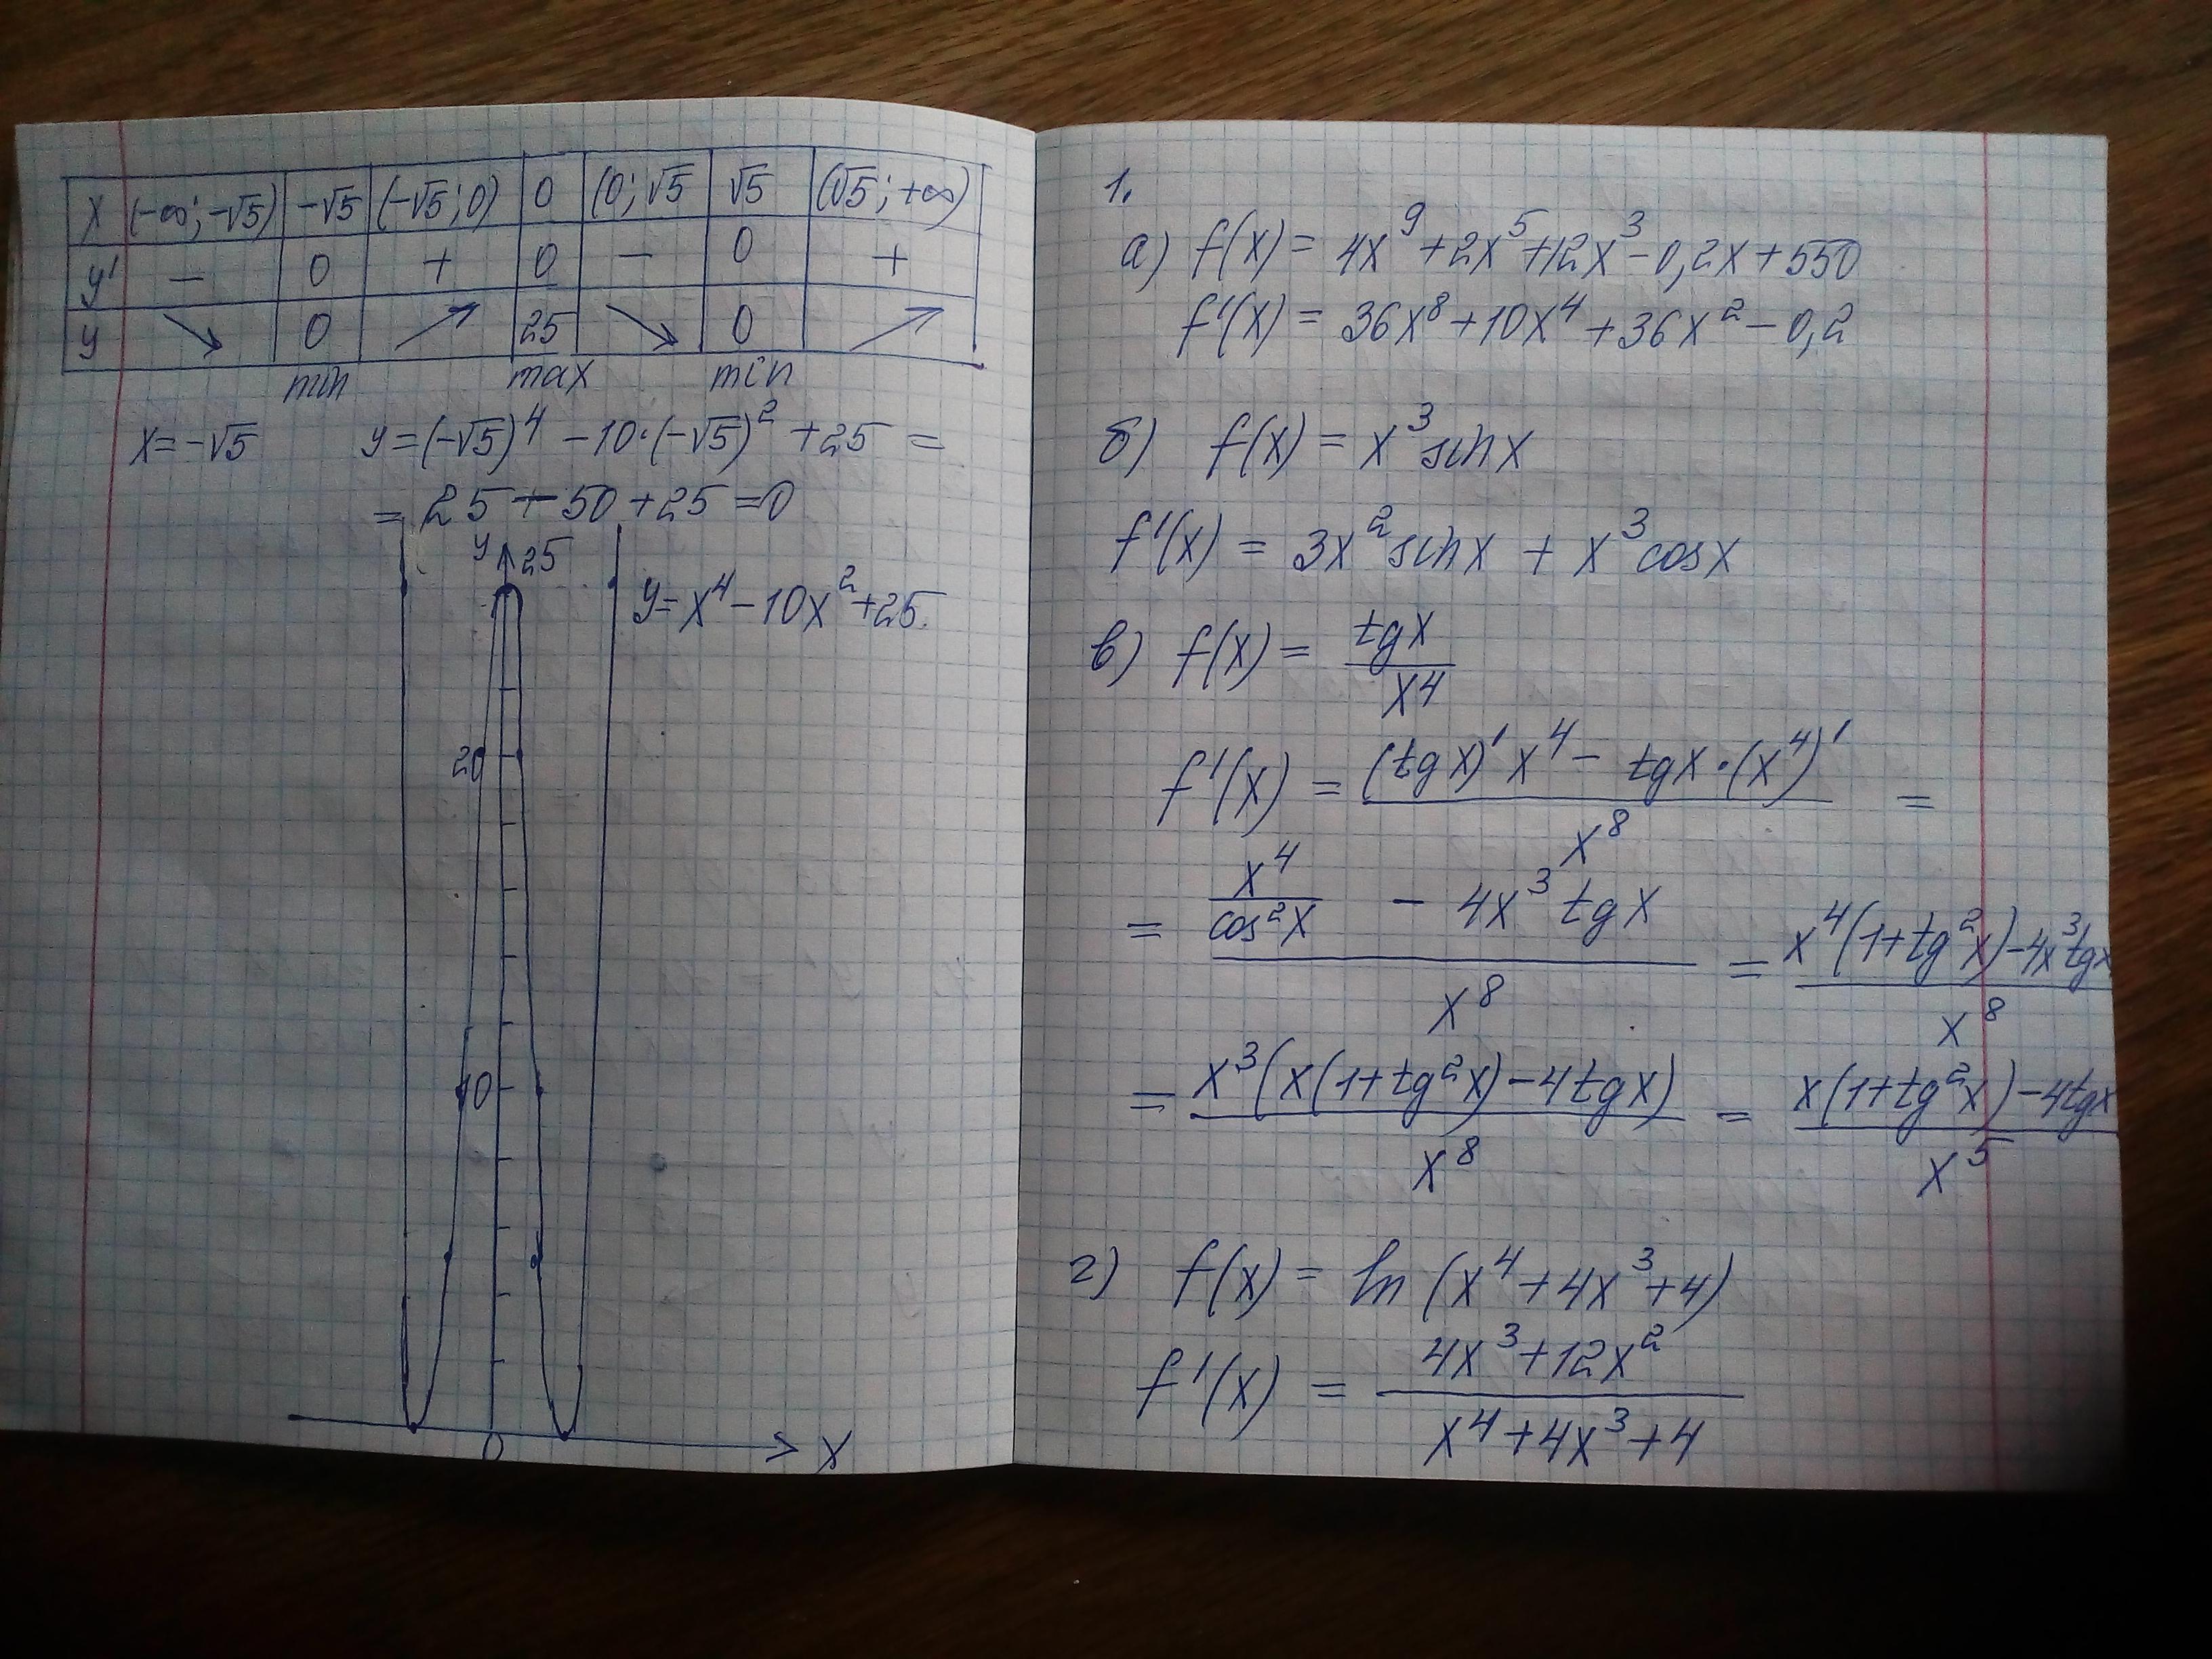 x (-∞; -√5) -√5 (-√5; 0) 0 (0; √5 √5 (√5; +∞)
y' − 0 + 0 − 0 +
y ↘ 0 ↗ 25 ↘ 0 ↗
min max min
x = -√5 y = (-√5)⁴ - 10·(-√5)² + 25 =
= 25 - 50 + 25 = 0
y 25
y = x⁴ - 10x² + 25.
20
10
0 x
1.
а) f(x) = 4x⁹ + 2x⁵ + 12x³ - 0,2x + 550
f'(x) = 36x⁸ + 10x⁴ + 36x² - 0,2
б) f(x) = x³ sin x
f'(x) = 3x² sin x + x³ cos x
в) f(x) = tg x / x⁴
f'(x) = ((tg x)' x⁴ - tg x · (x⁴)') / x⁸ =
= (x⁴/cos² x - 4x³ tg x) / x⁸ = (x⁴(1 + tg² x) - 4x³ tg x) / x⁸
= x³(x(1 + tg² x) - 4 tg x) / x⁸ = (x(1 + tg² x) - 4 tg x) / x⁵
г) f(x) = ln (x⁴ + 4x³ + 4)
f'(x) = (4x³ + 12x²) / (x⁴ + 4x³ + 4)